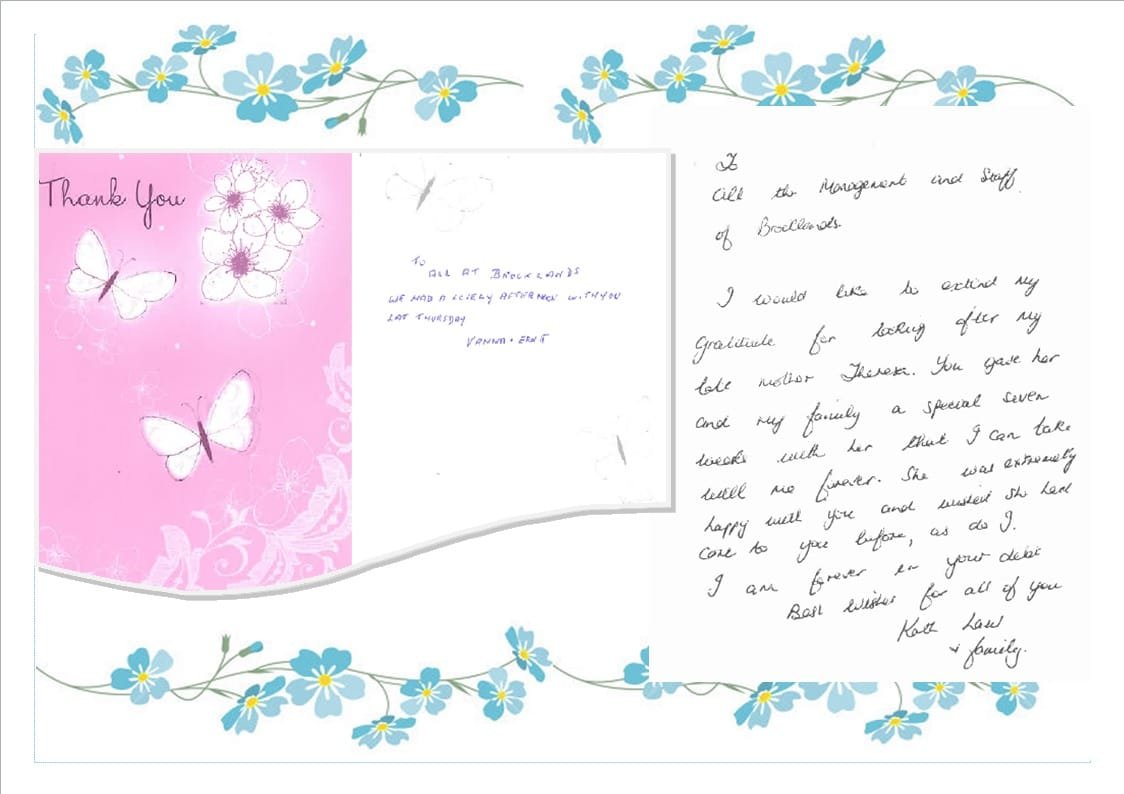 Thank You
To
ALL AT BROCKLANDS
WE HAD A LOVELY AFTERNOON WITH YOU
LAT THURSDAY
To
all the Management and Staff
of Brocklands.
I would like to extend my
Gratitude for looking after my
late mother Theresa. You gave her
and my family a special seven
weeks with her that I can take
will me forever. She was extremely
happy with you and wished she had
come to you before, as do I.
I am forever in your debt
Best wishes for all of you
Kath Law
+ family.